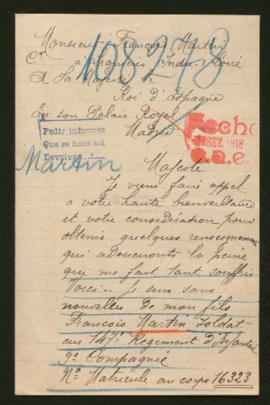 108278
Monsieur François Martin
à Indre
A Sa Majesté
Roi d'Espagne
En son Palais Royal
Madrid
Pedir informes
Que se hace así
Devolver
Fecho
SET. 1918
Martin
Majesté
Je viens faire appel
à votre haute bienveillance
et votre consideration pour
obtenir quelques renseignements
qui adoucironts la peine
qui me fait tant souffrir
Voici – Je suis sans
nouvelles de mon fils
François Martin Soldat
au 147e Regiment d'Infanterie
9e Compagnie
No Matricule au corps 16323